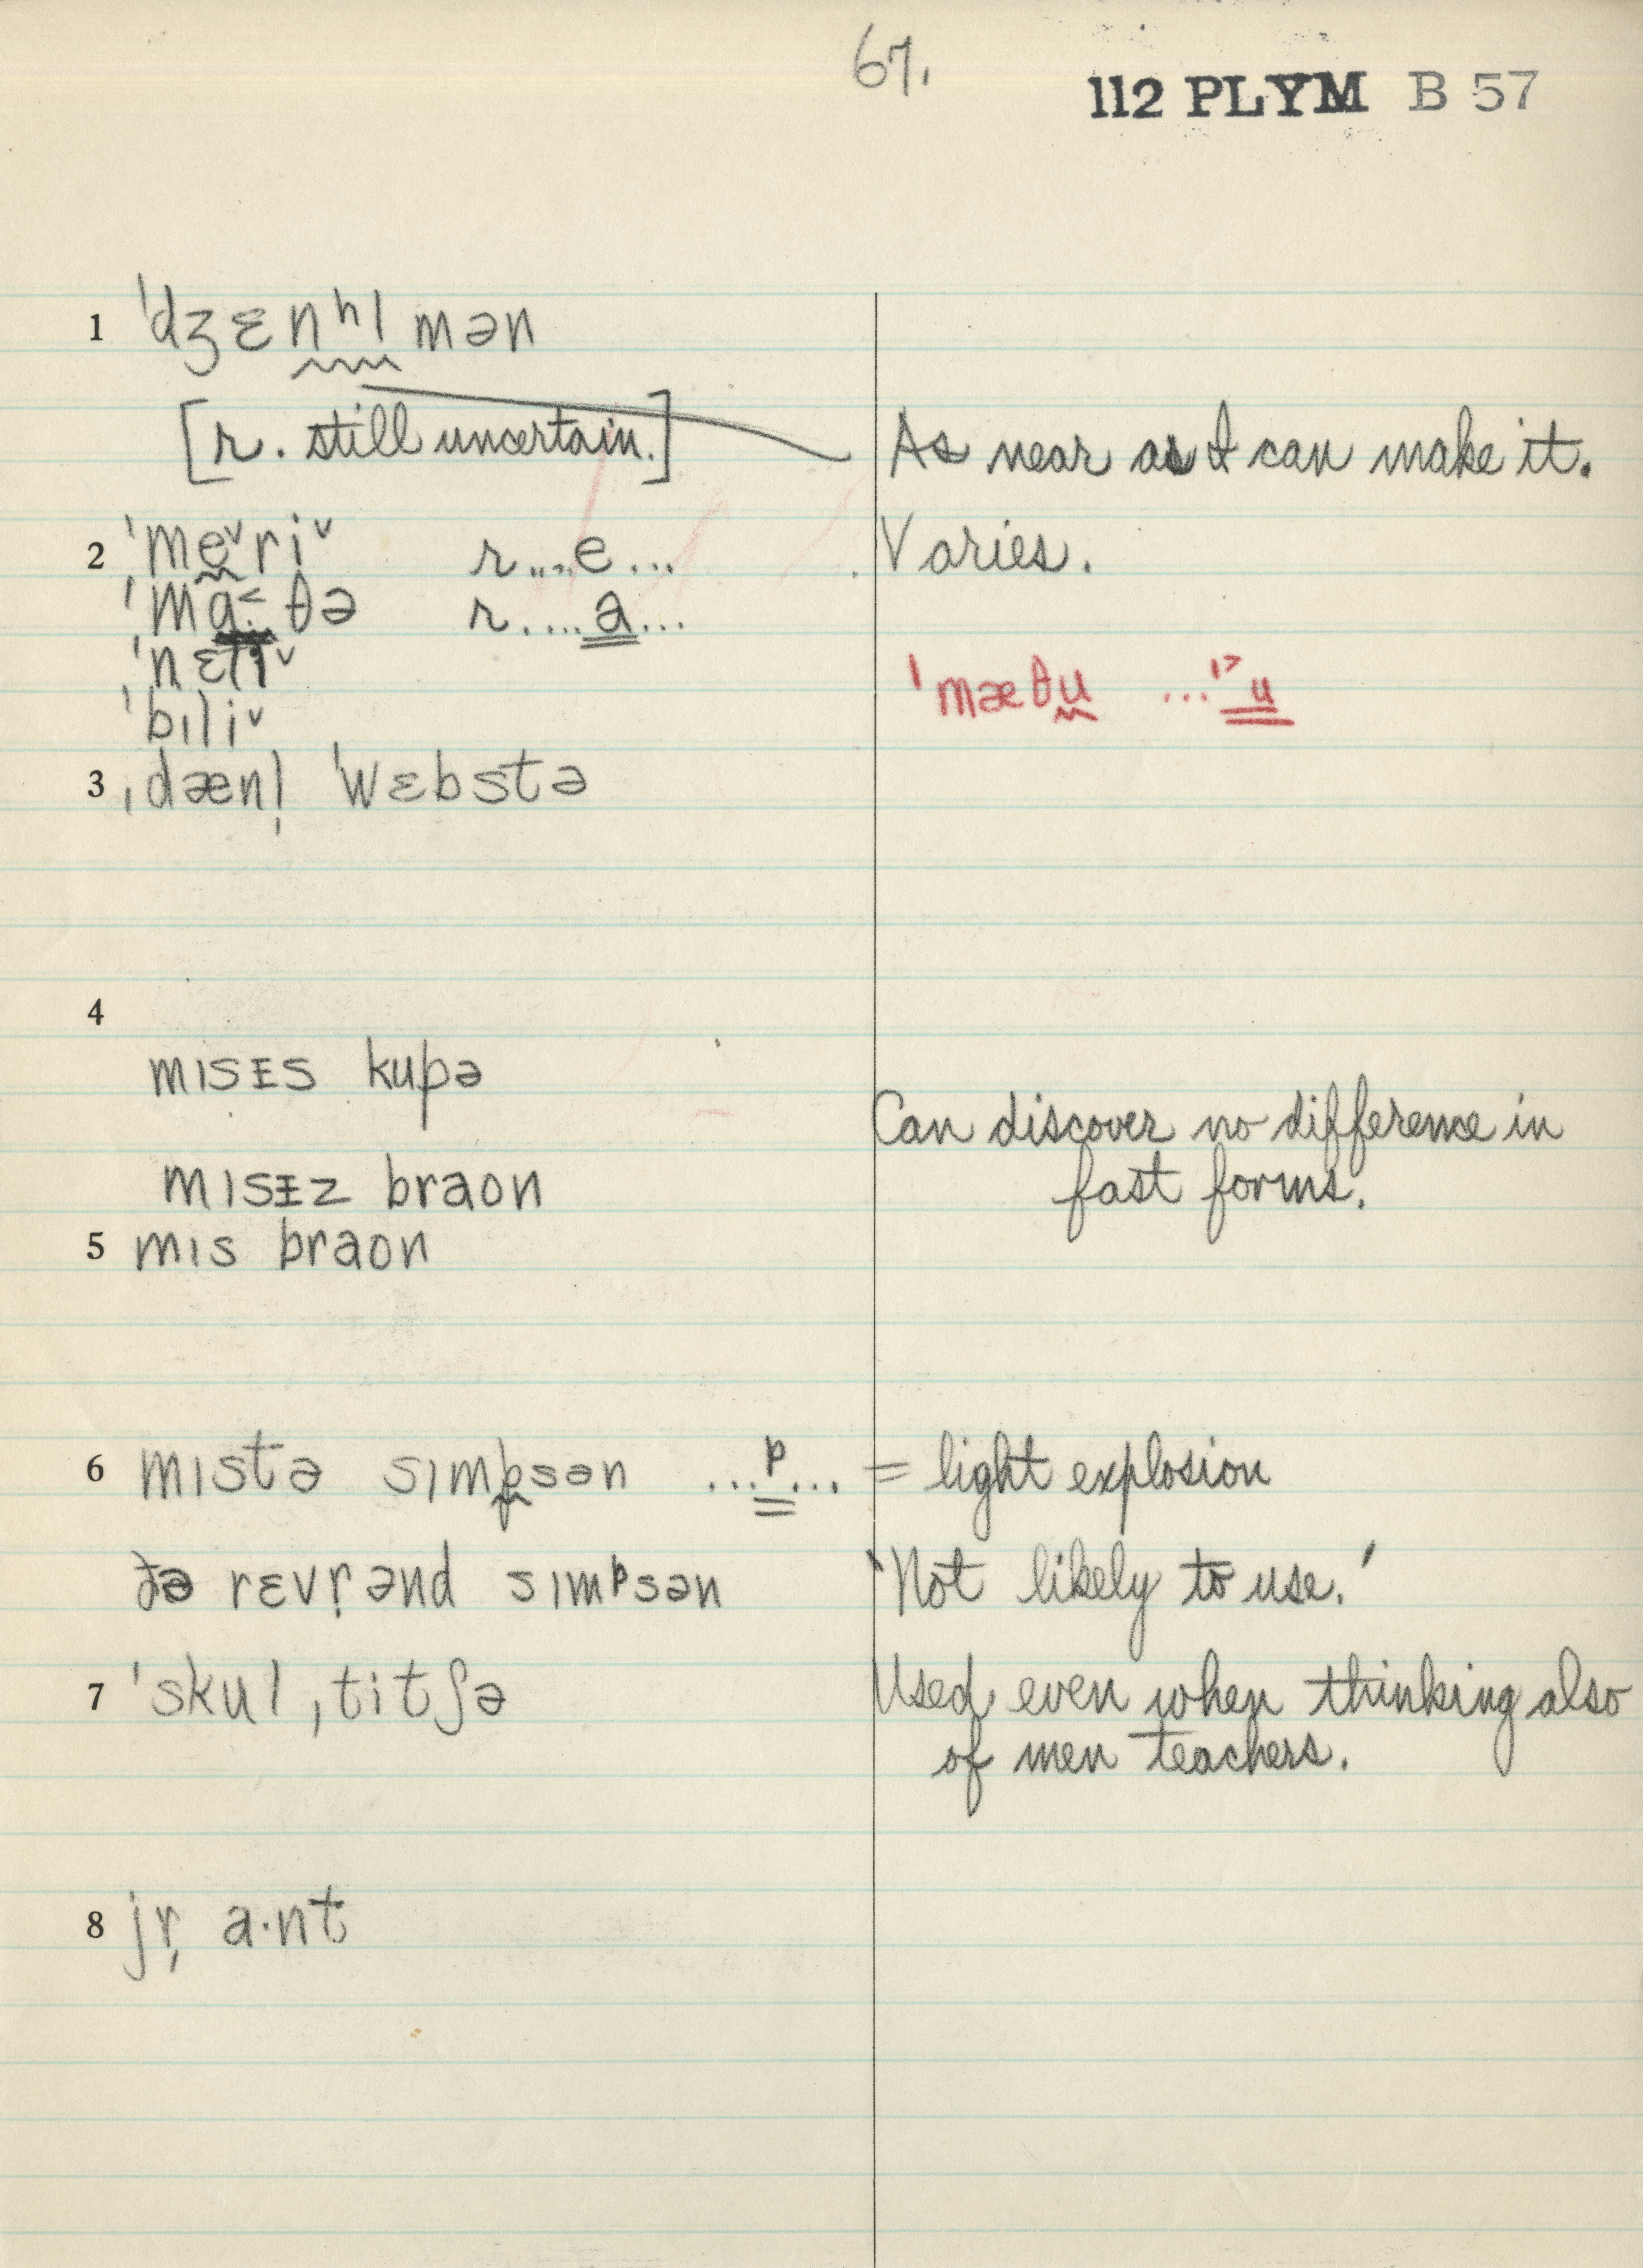 67.
112 PLYM B 57
1 ˈdʒɛnʰlmən
[r. still uncertain.] As near as I can make it.
2 ˈmeᵛriᵛ r....e... Varies.
ˈma˂·θə r.....a...
ˈnɛtiᵛ
ˈmæθu ...ˀu
ˈbɪliᵛ
3 ˌdænl̩ ˈwɛbstə
4
mɪsᵻs kupə
Can discover no difference in
mɪsᵻz braon fast forms.
5 mɪs braon
6 mɪstə sɪmpsən ...ᵖ... = light explosion
ðə rɛvr̩ənd sɪmᵖsən 'Not likely to use.'
7 ˈskulˌtitʃə Used even when thinking also
of men teachers.
8 jr̩ a·nt